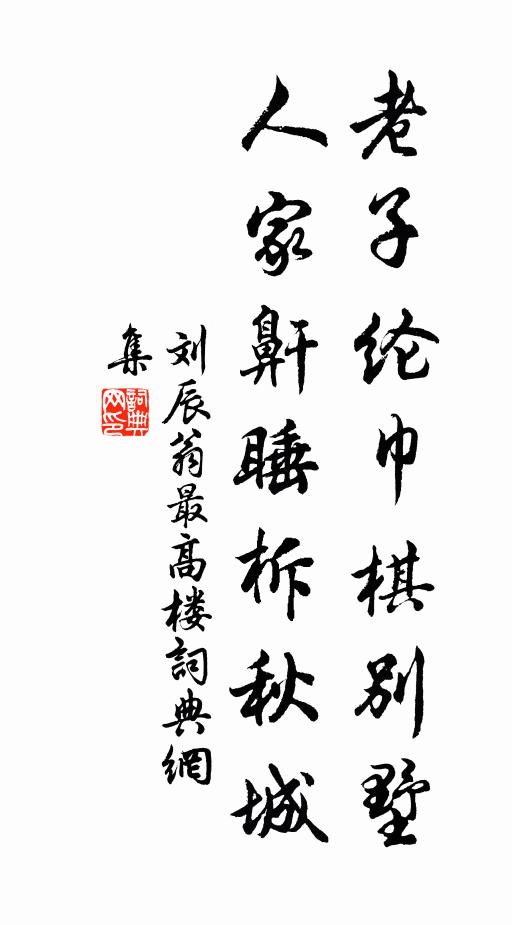 老子纶巾棋别墅
人家鼾睡柝秋城
刘辰翁最高楼詞典網
集
詞典
网印